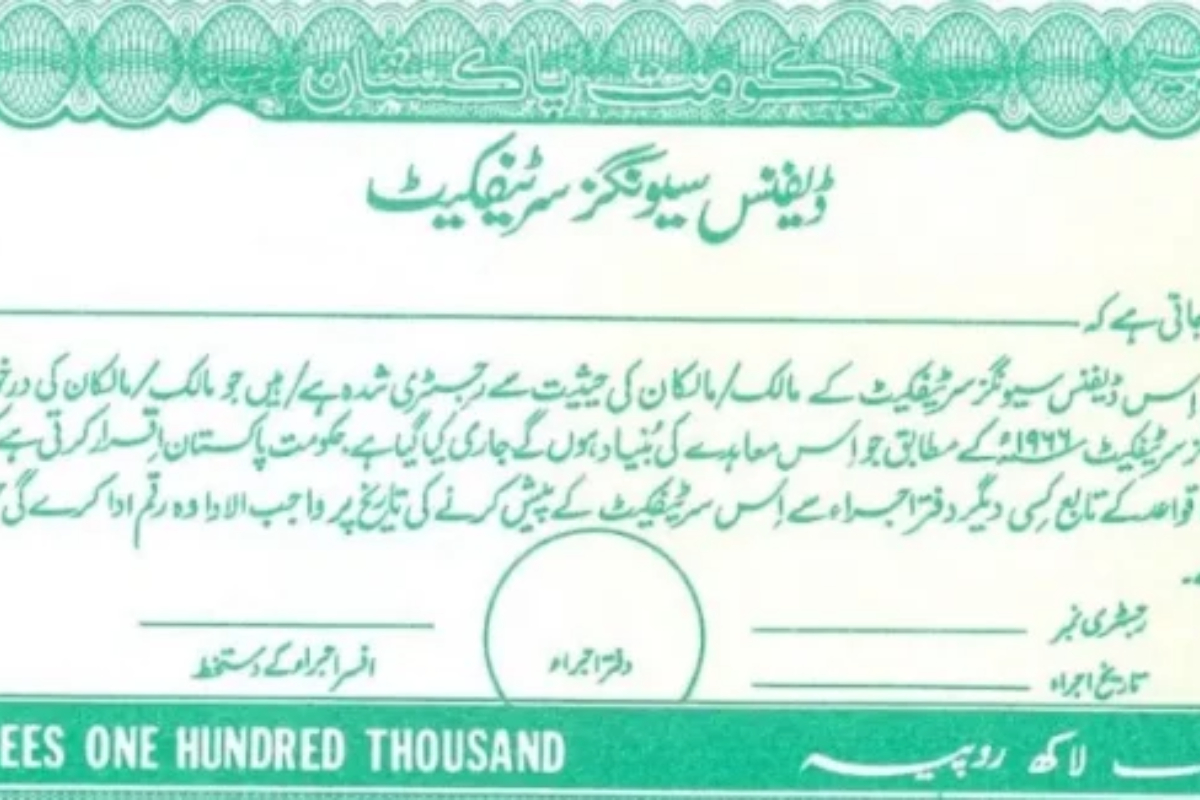 حکومت پاکستان
ڈیفنس سیونگز سرٹیفکیٹ
جاتی ہے کہ
اس ڈیفنس سیونگز سرٹیفکیٹ کے مالک/مالکان کی حیثیت سے رجسٹری شدہ ہے/ہیں جو مالک/مالکان کی
سرٹیفکیٹ ۱۹۶۶ء کے مطابق جو اِس معاہدے کی بُنیاد ہوں گے جاری کیا گیا ہے حکومت پاکستان اِقرار کرتی ہے
قواعد کے تابع کِسی دیگر دفتر اجراء سے اِس سرٹیفکیٹ کے پیش کرنے کی تاریخ پر واجب الادا وہ رقم ادا کرے گی
رجسٹری نمبر
دفتر اجراء
افسر اجراء کے دستخط
تاریخ اجراء
EES ONE HUNDRED THOUSAND
لاکھ روپیہ